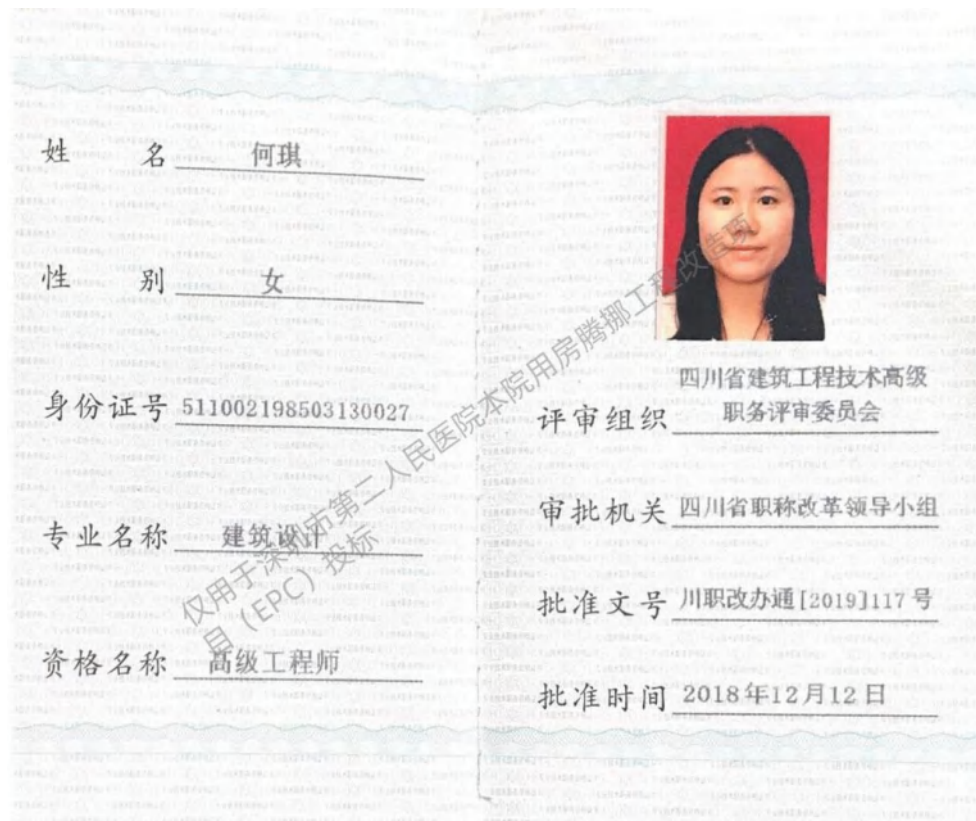 姓 名 何琪
性 别 女
身份证号 511002198503130027
专业名称 建筑设计
资格名称 高级工程师
评审组织 四川省建筑工程技术高级
职务评审委员会
审批机关 四川省职称改革领导小组
批准文号 川职改办通[2019]117号
批准时间 2018年12月12日
仅用于深圳市第二人民医院本院用房腾挪工程改造项
目（EPC）投标